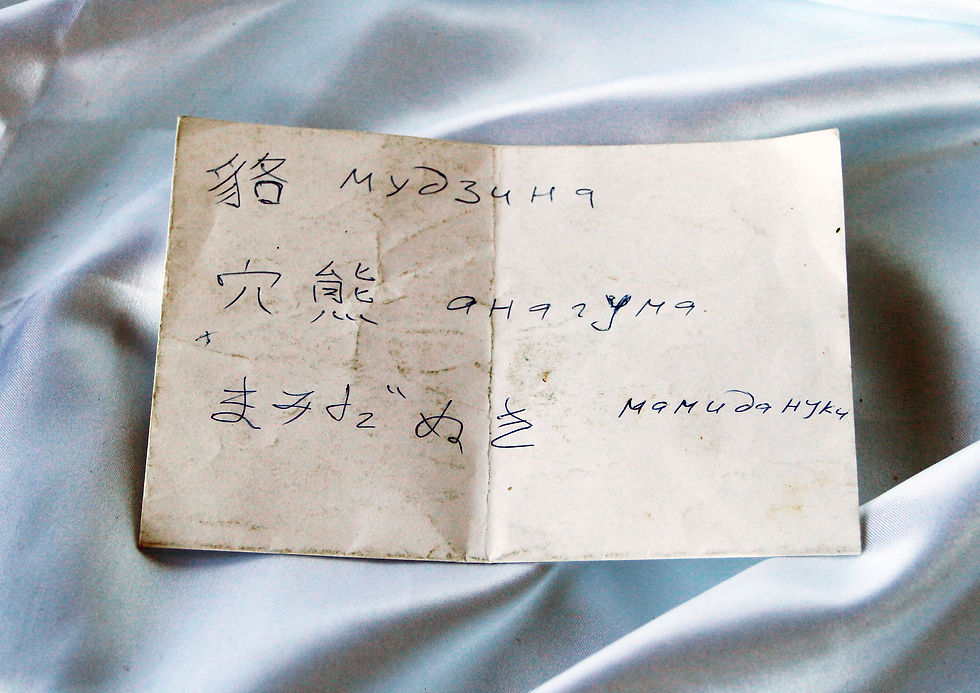 貉 мудзина
穴熊 анагума
まみだぬき мамидануки